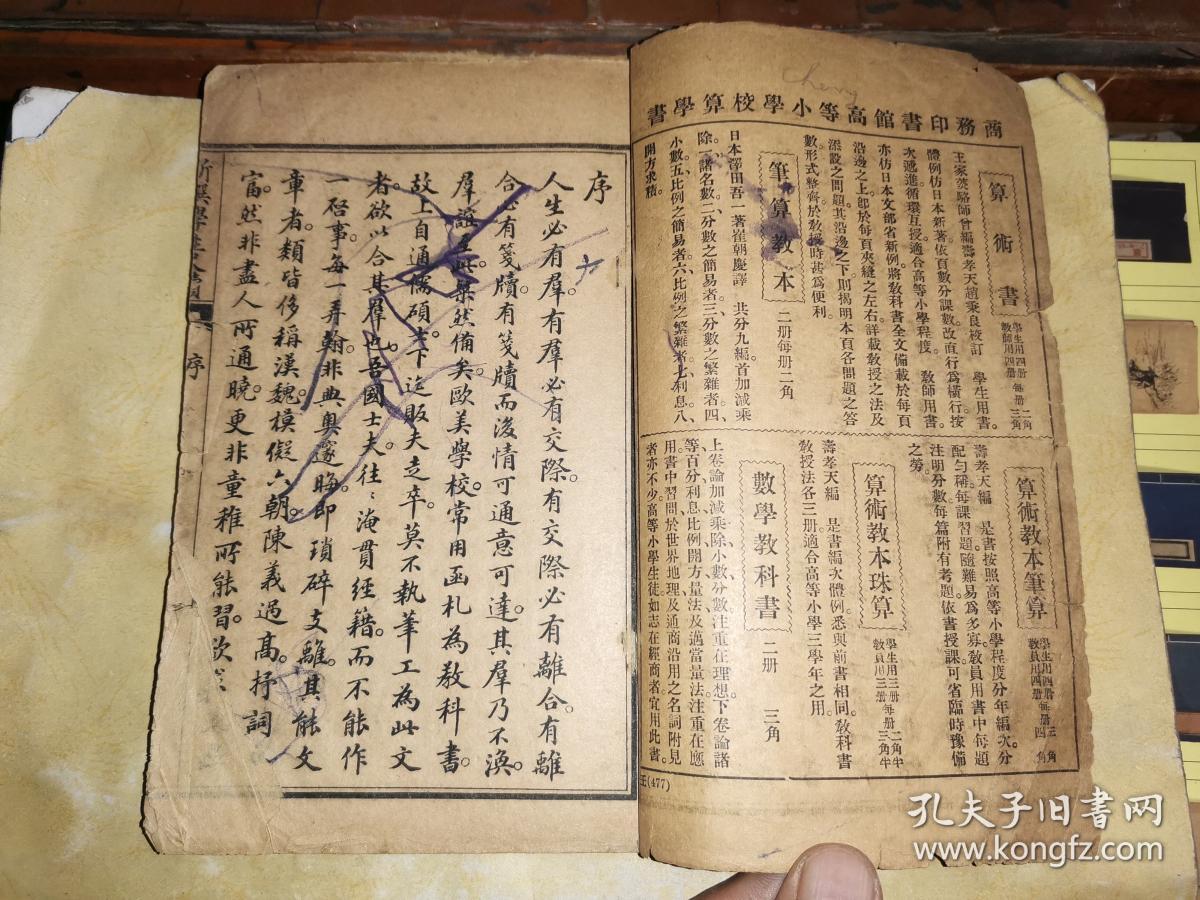 cherry
商務印書館高等小學校算學書
算術書
學生用四册 每册二角
教師用四册 每册三角
王家菼駱師曾編壽孝天趙秉良校訂 學生用書。
體例仿日本新著依頁數分課。數改直行爲橫行。按
次遞進。循環互授。適合高等小學程度。 敎師用書。
亦仿日本文部省新例。將敎科書全文備載於每頁
沿邊之上。卽於每頁夾縫之左右。詳載敎授之法及
添設之問題。其沿邊之下。則揭明本頁各問題之答
數。形式整齊。於敎授時甚爲便利。
筆算教本
二册每册二角
日本澤田吾一著崔朝慶譯 共分九編。首加減乘
除。一諸名數。二分數之簡易者。三分數之繁雜者。四、
小數。五、比例之簡易者。六、比例之繁雜者。七、利息。八、
開方求積。
算術教本筆算
學生用四册每册三角
教員用四册每册四角
壽孝天編 是書按照高等小學程度分年編次。分
配勻稱。每課習題。隨難易爲多寡。敎員用書中每題
注明分數。每篇附有考題。依書授課。可省臨時豫備
之勞。
算術教本珠算
學生用三册每册二角半
教員用三册每册三角半
壽孝天編 是書編次體例。悉與前書相同。敎科書
敎授法各三册。適合高等小學三學年之用。
數學教科書
二册 三角
上卷論加減乘除小數分數。注重在理想。下卷論諸
等百分利息比例開方量法及適當量法。注重在應
用。書中習問於世界地理及通商沿用之名詞附見
者亦不少。高等小學生徒如志在經商者宜用此書。
王(477)
序
人生必有羣。有羣必有交際。有交際必有離合。有離
合必有箋牘。有箋牘而後情可通意可達。其羣乃不渙。
羣誼至此。粲然備矣。歐美學校。常用函札為教科書。
故上自通儒碩士。下迄販夫走卒。莫不執筆工為此文
者。欲以合其羣也。吾國士夫。往〻淹貫經籍。而不能作
一啓事。每一弄翰。非典奧邃晦。即瑣碎支離。其能文
章者。類皆侈稱漢魏。模儗六朝。陳義過高。抒詞
富。然非盡人所通曉。更非童稚所能習。欲
新撰學生
序
孔夫子旧书网
www.kongfz.com